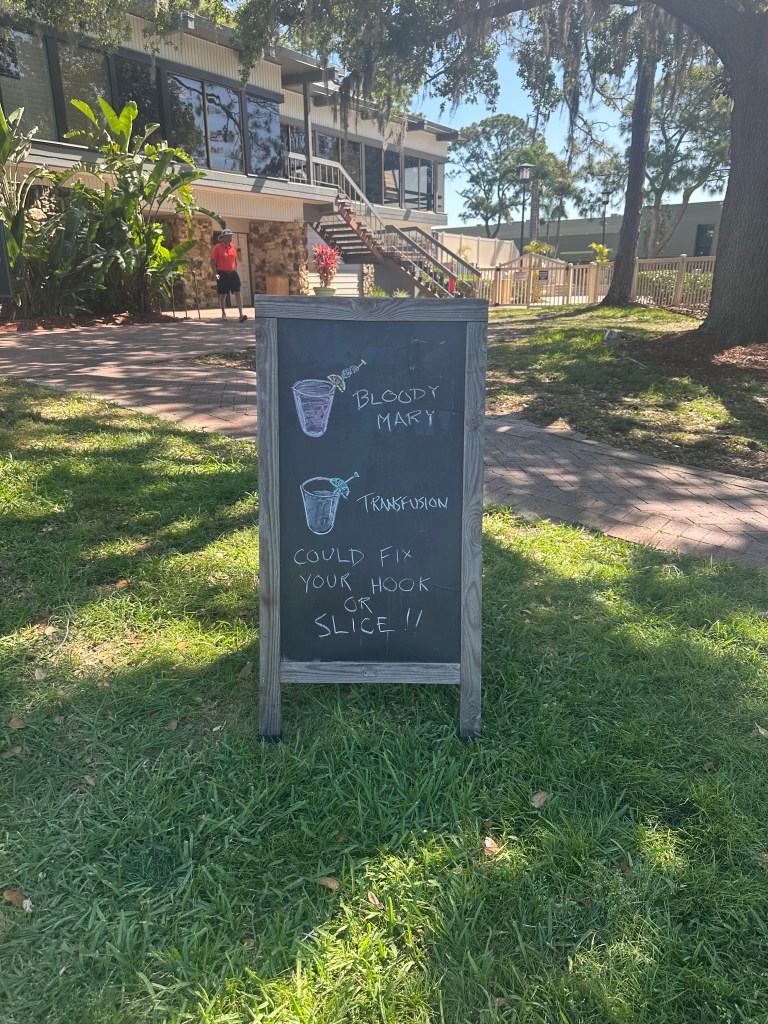 BLOODY
MARY
TRANSFUSION
COULD FIX
YOUR HOOK
OR
SLICE!!